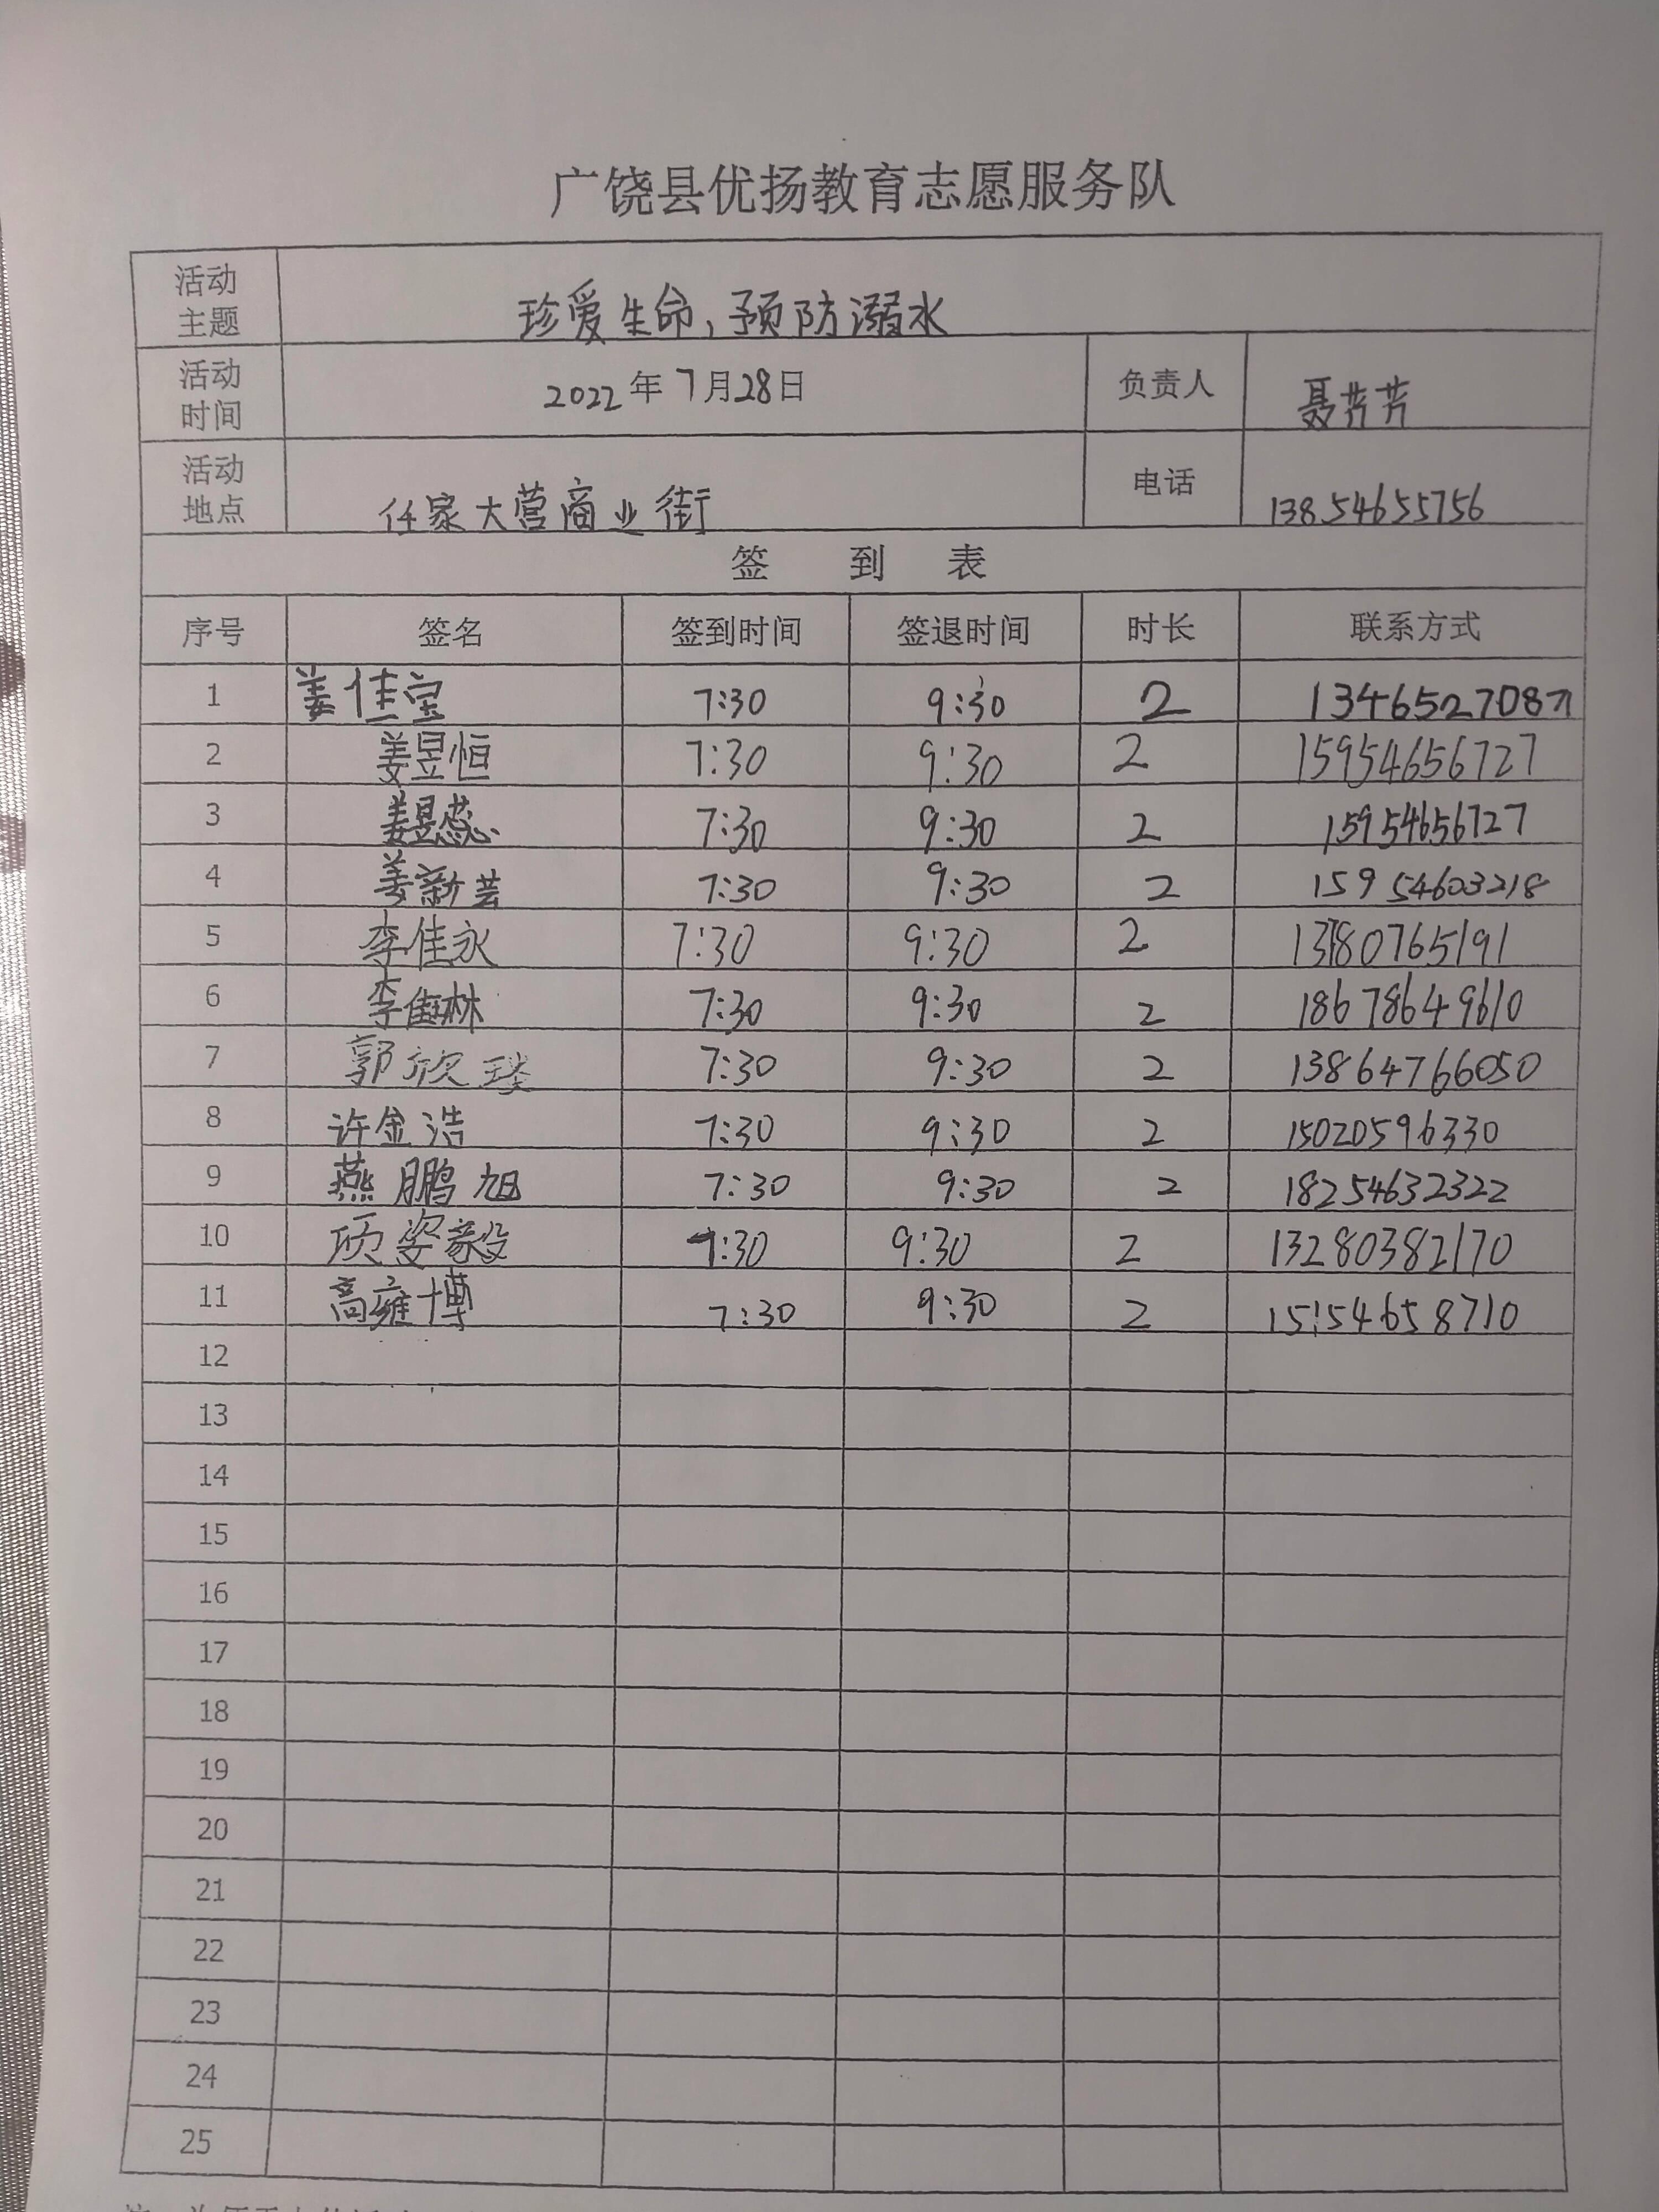 广饶县优扬教育志愿服务队
活动主题 珍爱生命,预防溺水
活动时间 2022年7月28日 负责人 聂芳芳
活动地点 任家大营商业街 电话 13854655756
签到表
序号 签名 签到时间 签退时间 时长 联系方式
1 姜佳宝 7:30 9:30 2
2 姜昱恒 7:30 9:30 2 15954656727
3 姜昱蕊 7:30 9:30 2 15954656727
4 姜新芸 7:30 9:30 2 15954603218
5 李佳永 7:30 9:30 2
6 李 林 7:30 9:30 2 18678649610
7 郭欣 7:30 9:30 2 13864766050
8 许金浩 7:30 9:30 2 15020596330
9 燕鹏旭 7:30 9:30 2 18254632322
10 项姿毅 7:30 9:30 2 13280382170
11 高雍博 7:30 9:30 2 15154658710
12
13
14
15
16
17
18
19
20
21
22
23
24
25